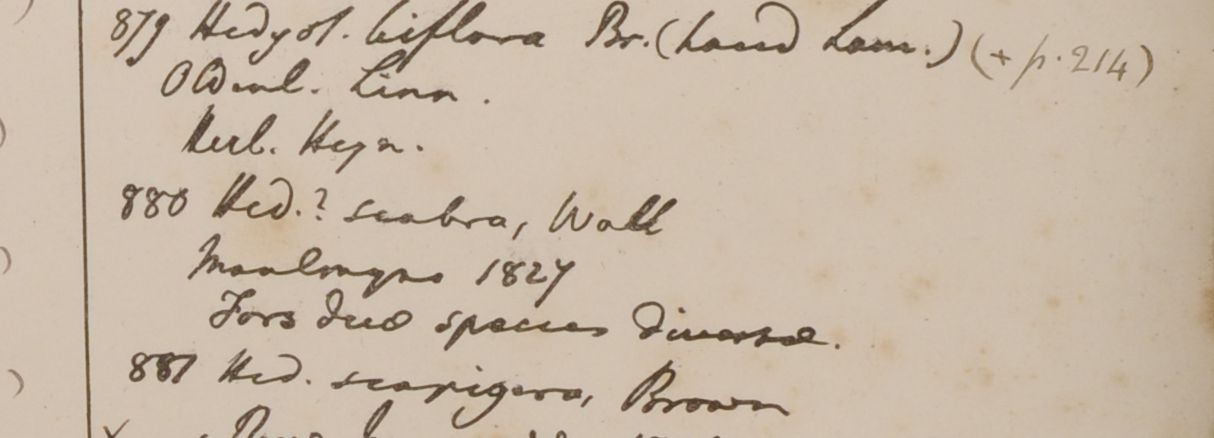 879 Hedyot. biflora Br. (haud Lam.) (+ p. 214)
Oldenl. Linn.
Herb. Heyn.
880 Hed.? scabra, Wall
Moalmyne 1827
Fors duæ species diversæ.
881 Hed. scapigera, Brown